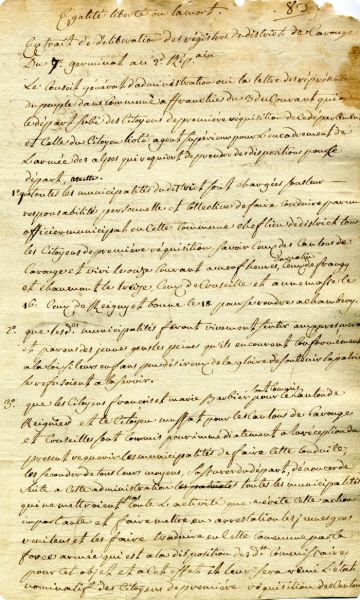 Egalité liberté ou la mort
Extrait de deliberation des registres du district de Carouge
Du 7e germinal an 2e Rep. ain
Le Conseil general d'administration oui la lettre des représents
du peuple dans commune affranchie du 3 du Courant qui
le départ des Citoyens de premiere réquisition de ce departement
et Celle du Citoyen agent supérieur pour l'encadrement de
L'armée des alpes qui requiert de prendre des dispositions pour le
départ, arrette
1° que toutes les municipalités du district sont chargées sous leur
responsabilité personnelle et Collective de faire conduire par un
officier municipal en cette Commune chef lieu de district tous
les Citoyens de premiere réquisition savoir Ceux des Cantons de
Carouge et viri le onze courant a neuf heures, Ceux de frangy
et chaumont le treize, Ceux de Conseille et annemasse le
16. Ceux de Reigny et bonne le 18 pour se rendre a chambery
2° que les d. municipalités feront vivement sentir aux peres meres
et parens des jeunes gens les peines qu'ils encourent conformement
a la loi si leurs enfans peu desireux de la gloire de soutenir la patrie
se refusoient a la servir.
3° que les Citoyens francois et marie Barbier pour le Canton de
Reignier et le Citoyen muffat pour les Cantons de Carouge
et Conseilles sont Commis pour immediatement a la reception du
present requerir les municipalités de faire cette conduite,
les seconder de tous leurs moyens, s'assurer du départ, dénoncer de
suite a Cette administration les toutes les municipalités
qui ne mettroient pas toute L'activité que mérite cette action
importante et faire mettre en arrestation les jeunes gens
et les faire traduire en Cette commune par la
force armée qui est a la disposition des d. Commissaires
pour cet objet et a cet effet il leur sera remi L'état
nominatif des Citoyens de premiere réquisition des Cantons